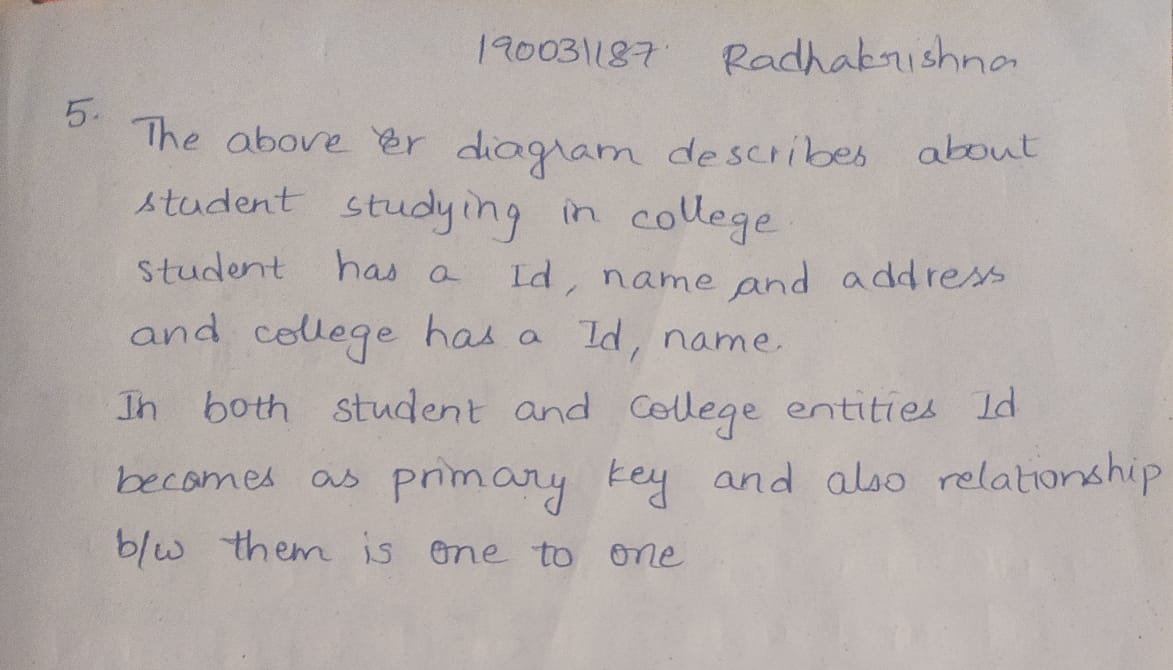 190031187 Radhakrishna
5.
The above er diagram describes about
student studying in college
student has a Id, name and address
and college has a Id, name.
In both student and College entities Id
becomes as primary key and also relationship
b/w them is one to one